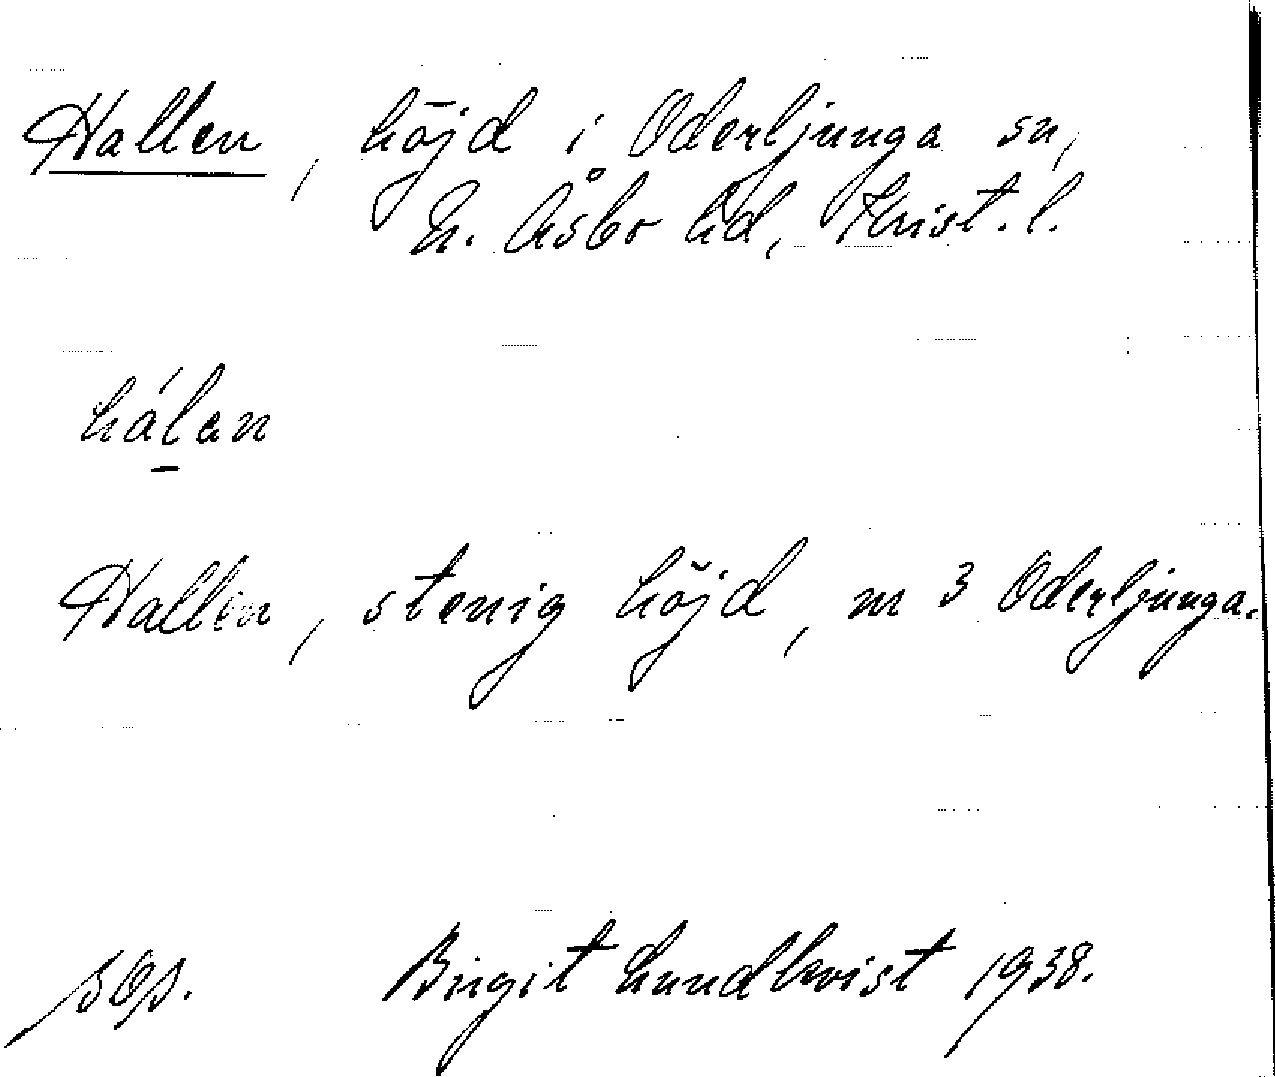 Hallen, höjd i Oderljunga sn,
N. Åsbo hd, Krist. l.
hálan
Hallen, stenig höjd, m 3 Oderljunga.
Birgit Lundkvist 1938.